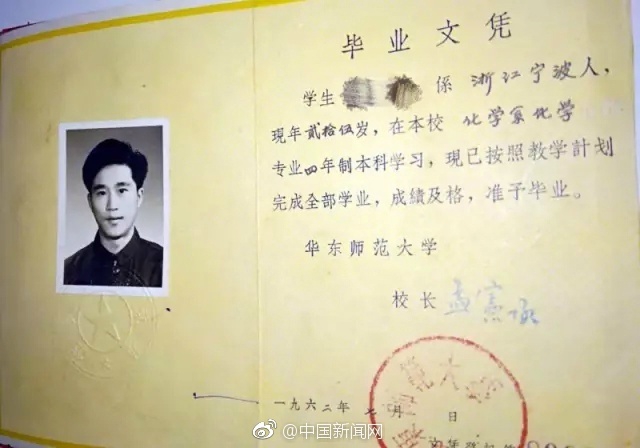 毕业文凭
学生 係 浙江宁波人,
現年贰拾伍岁,在本校 化学系化学
专业四年制本科学习,現已按照教学計划
完成全部学业,成績及格,准予毕业。
华东师范大学
校长 孟宪承
一九六二年七月 日
@中国新闻网